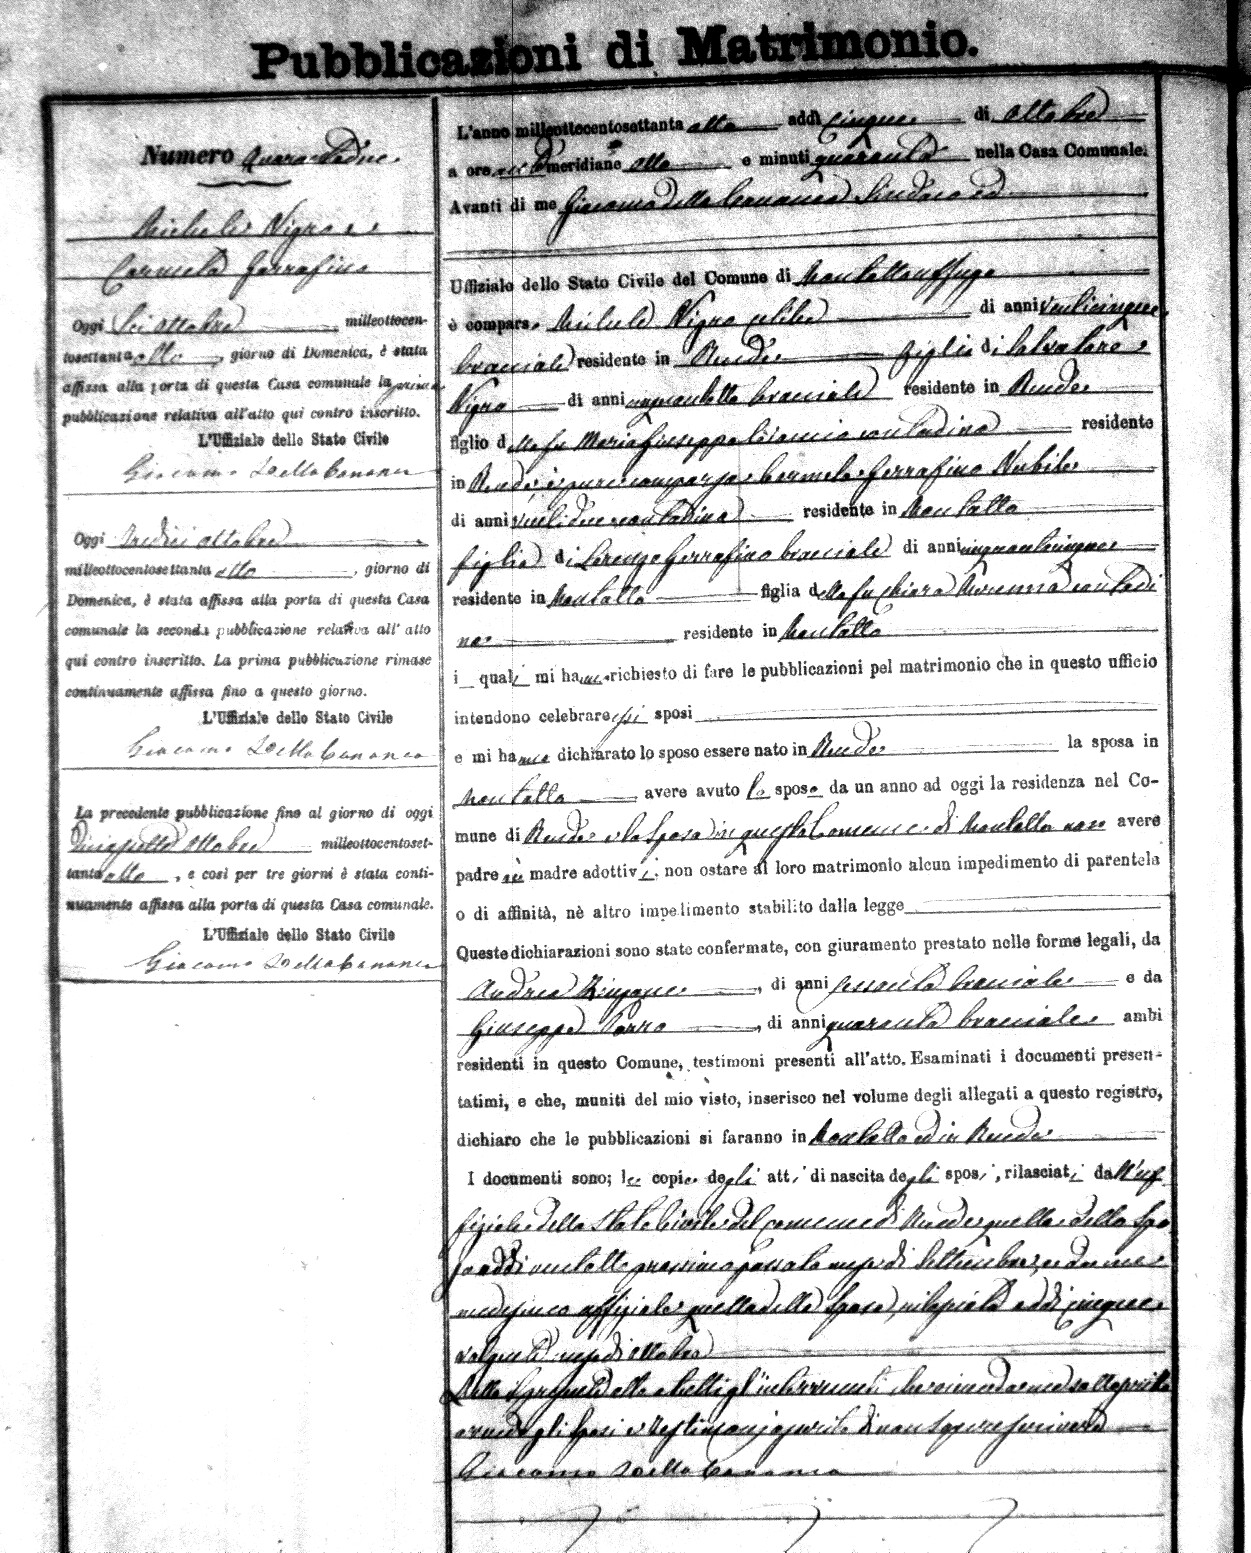 Pubblicazioni di Matrimonio.
Numero Quarantadue
Michele Vigna e
Carmela Garrafino
Oggi Sei Ottobre milleottocen-
tosettanta otto, giorno di Domenica, è stata
affissa alla porta di questa Casa comunale la prima
pubblicazione relativa all'atto qui contro inscritto.
L'Uffiziale dello Stato Civile
Giacomo Della Cananea
Oggi tredici Ottobre
milleottocentosettanta otto, giorno di
Domenica, è stata affissa alla porta di questa Casa
comunale la seconda pubblicazione relativa all'atto
qui contro inscritto. La prima pubblicazione rimase
continuamente affissa fino a questo giorno.
L'Uffiziale dello Stato Civile
Giacomo Della Cananea
La precedente pubblicazione fino al giorno di oggi
Ottobre milleottocentoset-
tanta otto, e così per tre giorni è stata conti-
nuamente affissa alla porta di questa Casa comunale.
L'Uffiziale dello Stato Civile
Giacomo Della Cananea
L'anno milleottocentosettanta otto addì cinque di Ottobre
a ore meridiane otto e minuti quaranta nella Casa Comunale.
Avanti di me Giacomo della Cananea Sindaco ed
Uffiziale dello Stato Civile del Comune di Montaltouffugo
è compars Michele Vigna celibe di anni venticinque
bracciale residente in Rende figlio di Salvatore
Vigna di anni bracciale residente in Rende
figlio della fu Maria Giuseppa contadina residente
in Rende è pure comparsa Carmela Garrafino Nubile
di anni ventidue contadina residente in Montalto
figlia di Lorenzo Garrafino bracciale di anni cinquantacinque
residente in Montalto figlia della fu Chiara contadi
na residente in Montalto
i quali mi hanno richiesto di fare le pubblicazioni pel matrimonio che in questo ufficio
intendono celebrare essi sposi
e mi hanno dichiarato lo sposo essere nato in Rende la sposa in
Montalto avere avuto lo sposo da un anno ad oggi la residenza nel Co-
mune di Rende e la sposa in questo Comune di Montalto non avere
padre nè madre adottivi; non ostare al loro matrimonio alcun impedimento di parentela
o di affinità, nè altro impedimento stabilito dalla legge
Queste dichiarazioni sono state confermate, con giuramento prestato nelle forme legali, da
Andrea, di anni sessanta bracciale e da
Giuseppe, di anni quaranta bracciale ambi
residenti in questo Comune, testimoni presenti all'atto. Esaminati i documenti presen-
tatimi, e che, muniti del mio visto, inserisco nel volume degli allegati a questo registro,
dichiaro che le pubblicazioni si faranno in Montalto ed in Rende
I documenti sono; le copie degli atti di nascita degli sposi, rilasciati dall'uf
fiziale dello Stato Civile del comune di Rende quella dello spo
so addì ventotto prossimo passato mese di Settembre, e da me
medesimo uffiziale quella della sposa, rilasciata addì cinque
volgente mese di Ottobre
Letto il presente atto a tutti gl'intervenuti
avendo gli sposi e testimoni asserito di non sapere scrivere
Giacomo Della Cananea